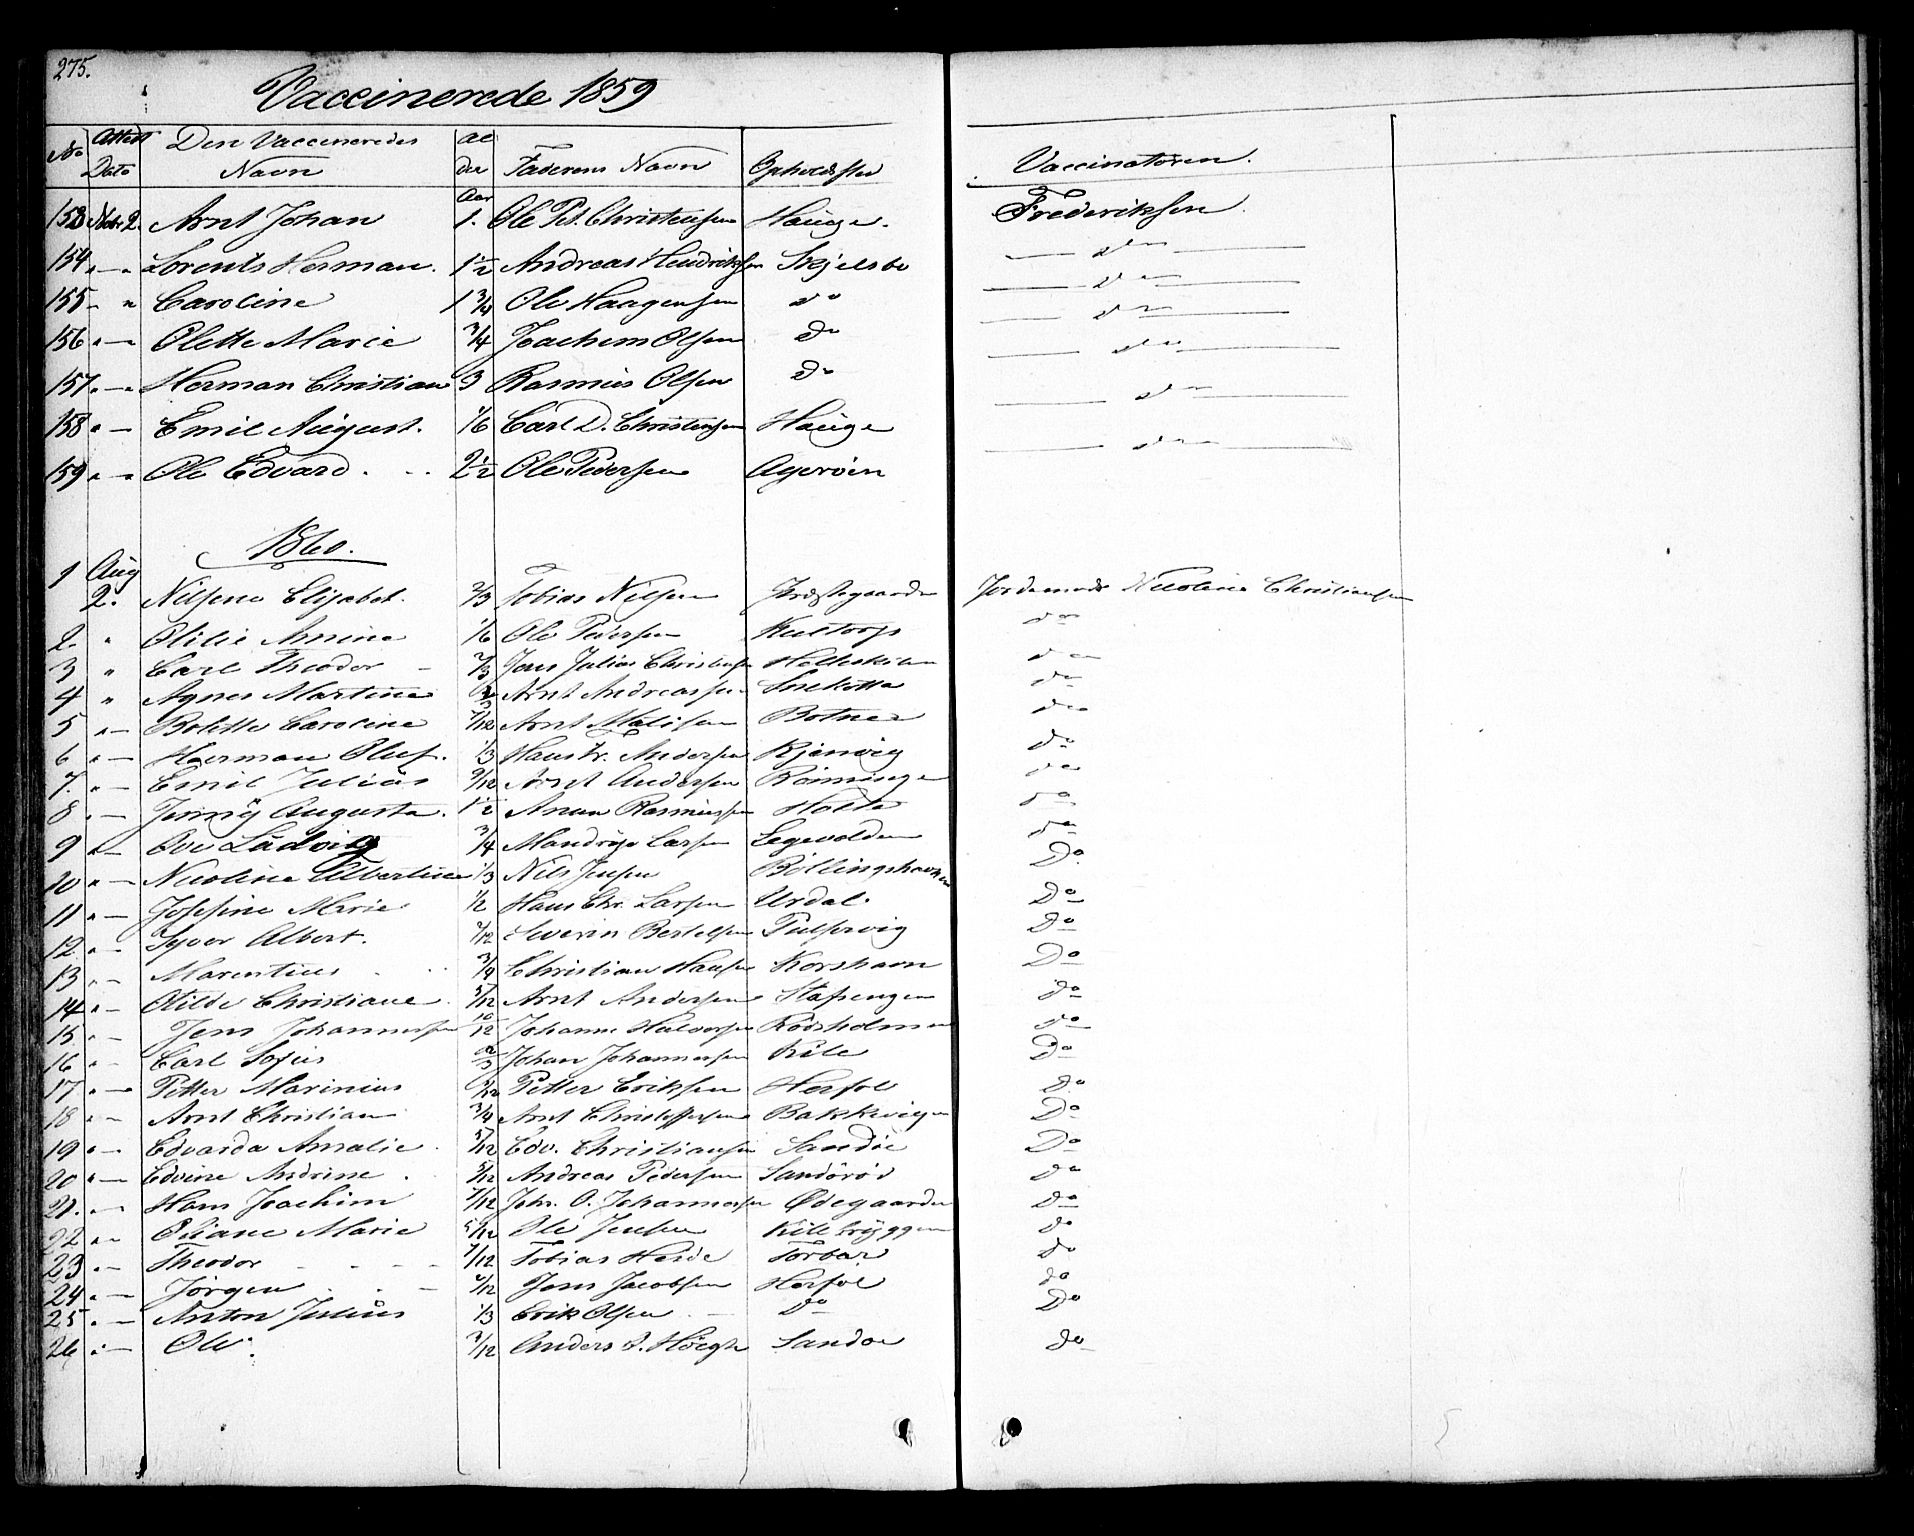 275.
Vaccinerede 1859
No Attest Dato Den Vaccineredes Navn Alder Faderens Navn Opholdsted Vaccinatoren.
Aar
153 Nobr 2. Arnt Johan 1. Ole Pet. Christensen Hauge. Frederiksen.
154 " — " Lorents Herman. 1 1/2 Andreas Hendriksen Skjelsbo — do —
155 — " Caroline 1 3/4 Ole Haagensen do — do —
156 " — Olette Marie 3/4 Joachim Olsen do — do —
157. " — " Herman Christian 3 Rasmus Olsen do — do —
158 " — Emil August. 1/6 Carl D. Christensen Hauge — do —
159 " — " Ole Edvard . . . 2 1/2 Ole Pedersen Agerøen — do —
1860.
1 Aug 2. Nilsene Elisabet. 2/3 Tobias Nilsen Præstegaarden Jordemoder Nicoline Christiansen
2. " Otilie Annine 1/6 Ole Pedersen Kultorp do
3 " Carl Theodor — 2/3 Jens Julius Christensen Hellekilen do
4 " Agnes Martine Arnt Andreassen do
5 " — Bolette Caroline 7/12 Arnt Botner do
6 " — Herman Oluf. 1/3 Hans Kr. Andersen Kjenvig do
7. " — Emil Julius 9/12 Arnt Andersen Rønningen do
8 " — Jenny Augusta. 1 1/2 Anun Rasmussen Holte do
9 " — Ove Ludvig 3/4 Larsen Legevolden do
10 " — Nicoline Albertine 1/3 Nils Jensen Bøllingshavnen Do
11 " — Josefine Marie 1/2 Hans Chr. Larsen Urdal. Do
12 " — Syver Albert. 7/12 Severin Bertelsen Pulservig Do
13 " — Marentius . . . 3/4 Christian Hansen Korshavn Do
14 " — Otilde Christiane. 5/12 Arnt Andersen Stafsengen do
15 " — Jens Johannessen 10/12 Johannes Halvorsen Rødsholmen do
16 " — Carl Sofus 2/3 Johan Johannessen Kile Do
17 " — Petter Marinius Petter Eriksen Herføl do
18 " — Arnt Christian 3/4 Arnt Christoffersen Bakkevigen Do
19 " — Edvarda Amalie. 5/12 Edv. Christiansen Sandøe Do
20 " — Edvine Andrine . 5/12 Andreas Pedersen Sandørød do
21. " — Hans Joachim 7/12 Joh. O. Johannessen Ødegaarden do
22 " — Oliane Marie 5/12 Ole Jensen Kilebryggen do
23 " — Theodor — — — — 7/12 Tobias Torbal do
24 " — Jørgen . . — 7/12 Jens Jacobsen Herføl do
25 " — Anton Julius 1/3 Erik Olsen — Do Do
26 " — Ole. 3/12 Anders P. Høegh Sandøe do